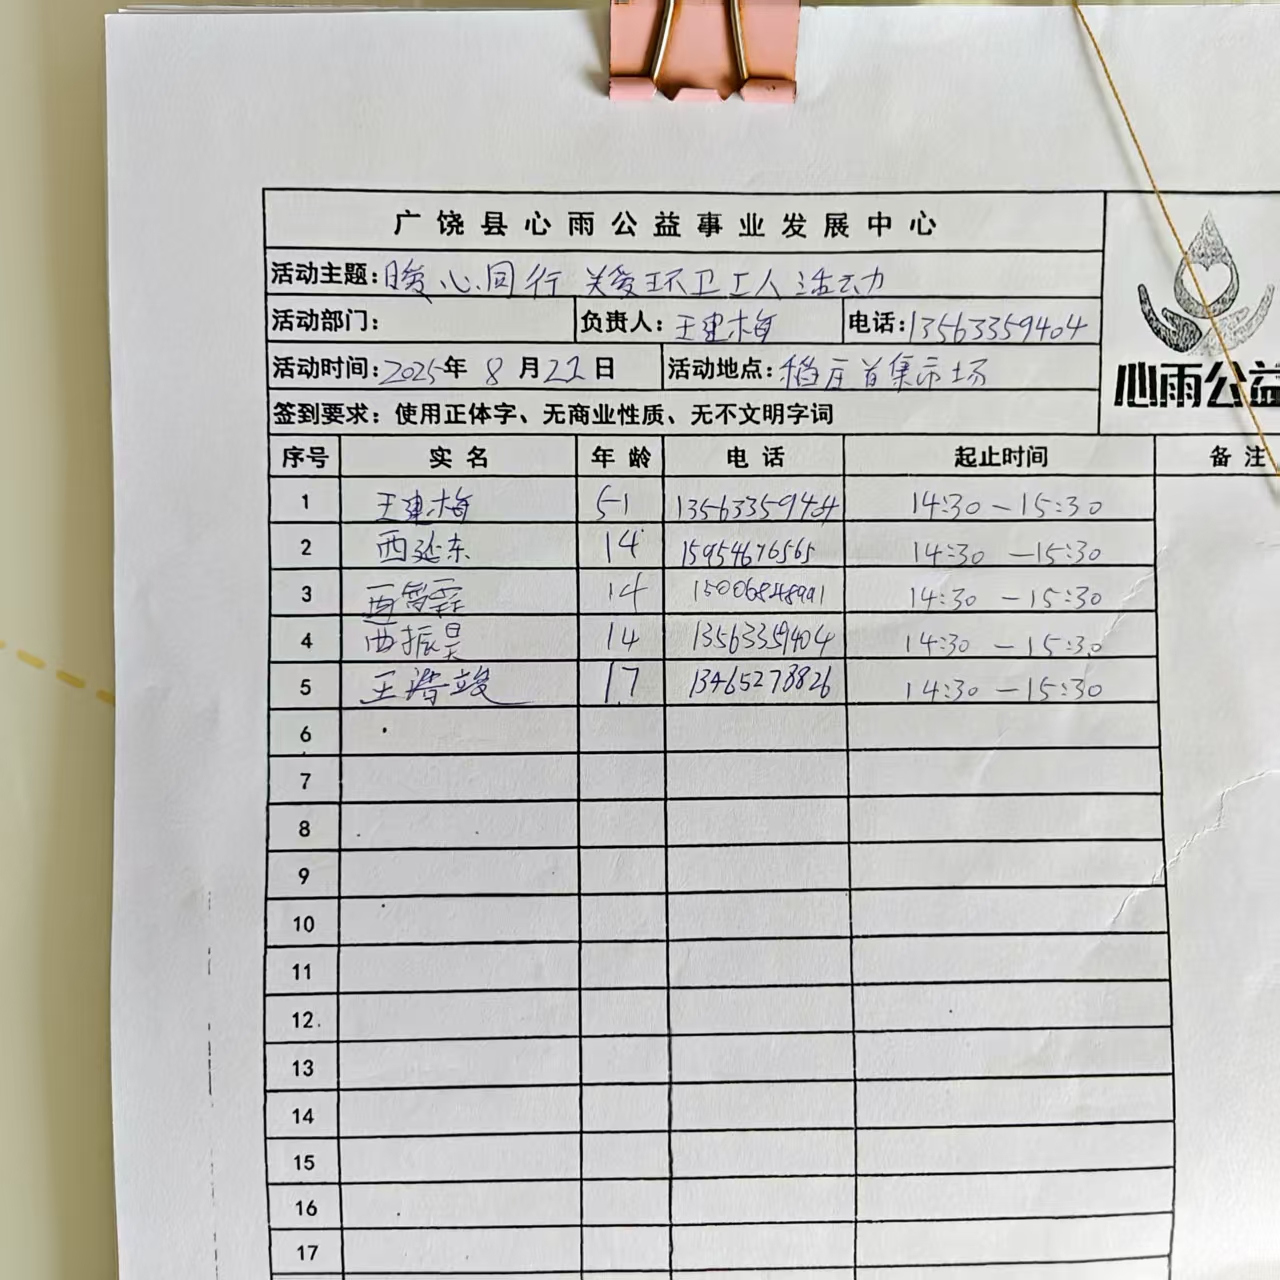 广饶县心雨公益事业发展中心
活动主题：暖心同行 关爱环卫工人活动
活动部门： 负责人：王建梅 电话：13563359404
活动时间：2025年 8 月 22 日 活动地点：稻庄首集市场
签到要求：使用正体字、无商业性质、无不文明字词
心雨公益
序号 实名 年龄 电话 起止时间 备注
1 王建梅 51 13563359404 14:30 — 15:30
2 西延东 14 15954676565 14:30 — 15:30
3 14 15006848991 14:30 — 15:30
4 西振昊 14 13563359404 14:30 — 15:30
5 王浩竣 17 13465278826 14:30 — 15:30
6
7
8
9
10
11
12
13
14
15
16
17